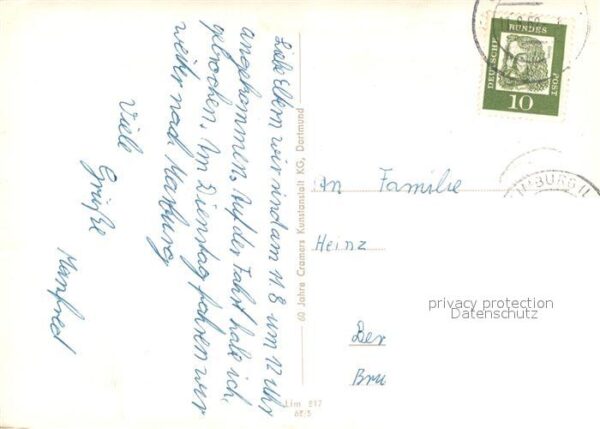 Liebe Eltern wir sind am 11.8 um 12 Uhr
angekommen. Auf der Fahrt habe ich
gebrochen. Am Dienstag fahren wir
weiter nach Marburg
Viele
Grüße
Manfred
60 Jahre Cramers Kunstanstalt KG, Dortmund
Lim 217
62/5
DEUTSCHE
BUNDES
POST
10
An Familie
Heinz
privacy protection
Datenschutz
Der
Bru